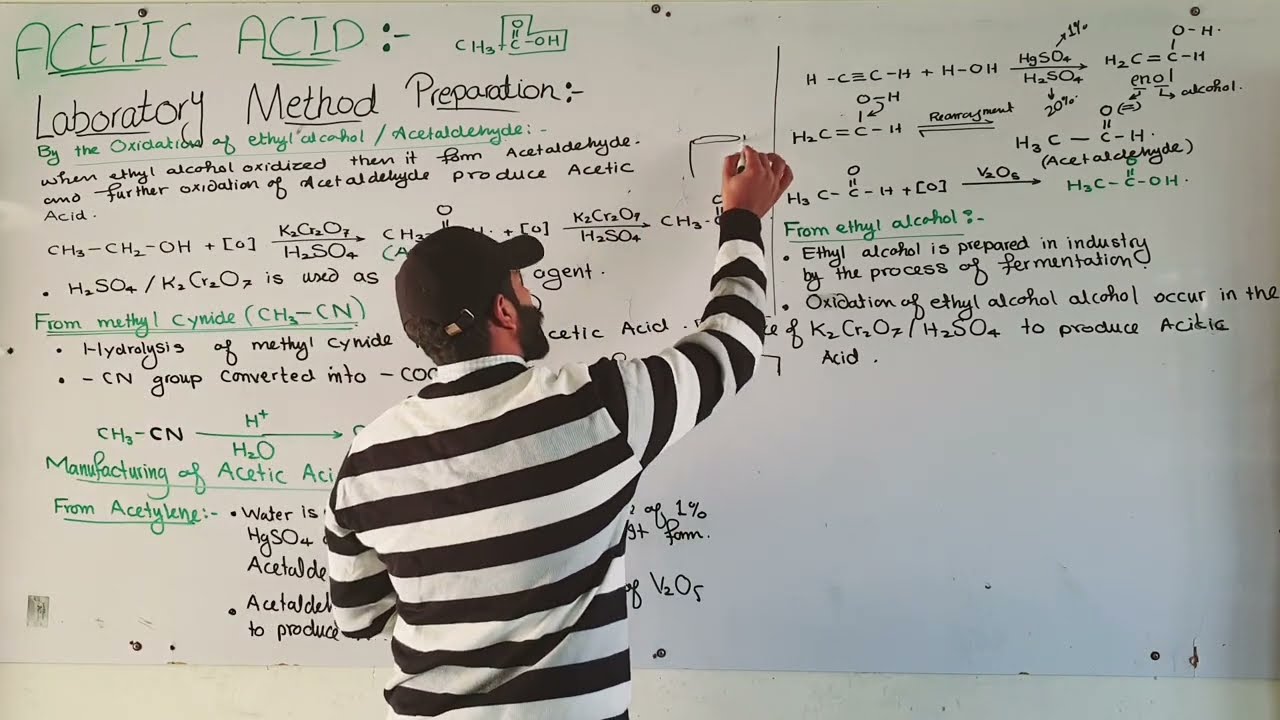 ACETIC ACID:-
CH3-C-OH
O
Laboratory Method Preparation:-
By the Oxidation of ethyl alcohol / Acetaldehyde:-
when ethyl alcohol oxidized then it form Acetaldehyde.
and further oxidation of Acetaldehyde produce Acetic
Acid.
O
CH3-CH2-OH + [O] K2Cr2O7 H2SO4 → + [O] K2Cr2O7 H2SO4 → CH3-
• H2SO4 / K2Cr2O7 is used as agent.
From methyl Cynide (CH3-CN)
• Hydrolysis of methyl cynide cetic Acid.
• -CN group converted into
CH3-CN H+ H2O →
Manufacturing of Acetic
From Acetylene:- • Water is of 1%
HgSO4 form.
• of V2O5
to produce
H-C≡C-H + H-OH HgSO4 → 1% H2SO4 → 20% H2C=C-H
O-H.
enol → alcohol.
O-H
H2C=C-H Rearragment H3C-C-H.
O (=)
(Acetaldehyde)
O
H3C-C-H + [O] V2O5 → H3C-C-OH.
O
From ethyl alcohol:-
• Ethyl alcohol is prepared in industry
by the process of fermentation.
• Oxidation of ethyl alcohol alcohol occur in the
of K2Cr2O7/H2SO4 to produce Acitic
Acid.